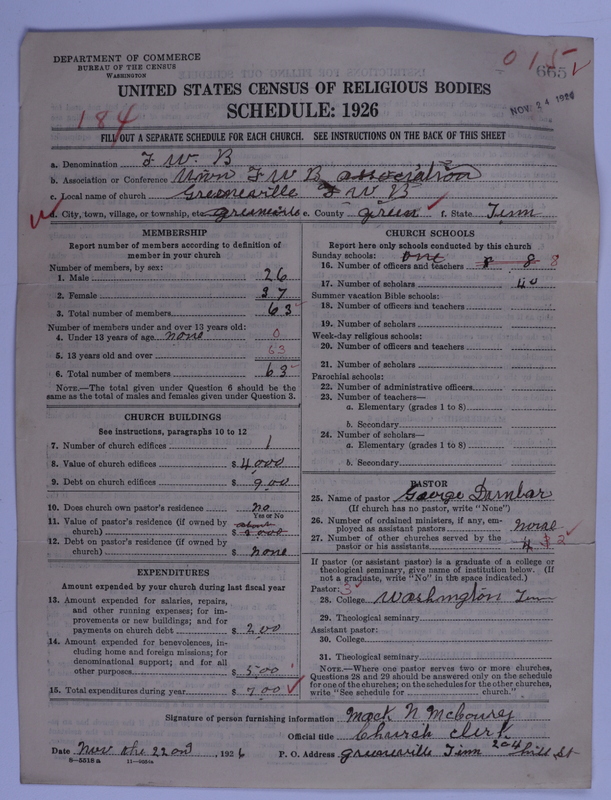 DEPARTMENT OF COMMERCE
BUREAU OF THE CENSUS
WASHINGTON
015
665
NOV 24 1926
UNITED STATES CENSUS OF RELIGIOUS BODIES
SCHEDULE: 1926
184
FILL OUT A SEPARATE SCHEDULE FOR EACH CHURCH. SEE INSTRUCTIONS ON THE BACK OF THIS SHEET
a. Denomination F W B
b. Association or Conference Union F W B association
c. Local name of church Greeneville F W B
d. City, town, village, or township, etc. Greeneville e. County Green f. State Tenn
MEMBERSHIP
Report number of members according to definition of
member in your church
Number of members, by sex:
1. Male 26
2. Female 37
3. Total number of members 63
Number of members under and over 13 years old:
4. Under 13 years of age none 0
5. 13 years old and over 63
6. Total number of members 63
NOTE.—The total given under Question 6 should be
the same as the total of males and females given under Question 3.
CHURCH BUILDINGS
See instructions, paragraphs 10 to 12
7. Number of church edifices 1
8. Value of church edifices $ 4000
9. Debt on church edifices $ 900
10. Does church own pastor's residence no
Yes or No
11. Value of pastor's residence (if owned by
church) $
12. Debt on pastor's residence (if owned by
church) $ none
EXPENDITURES
Amount expended by your church during last fiscal year
13. Amount expended for salaries, repairs,
and other running expenses; for im-
provements or new buildings; and for
payments on church debt $ 200
14. Amount expended for benevolences, in-
cluding home and foreign missions; for
denominational support; and for all
other purposes $ 500
15. Total expenditures during year $ 700
CHURCH SCHOOLS
Report here only schools conducted by this church
Sunday schools: one
16. Number of officers and teachers 8 8 8
17. Number of scholars 40
Summer vacation Bible schools:
18. Number of officers and teachers
19. Number of scholars
Week-day religious schools:
20. Number of officers and teachers
21. Number of scholars
Parochial schools:
22. Number of administrative officers
23. Number of teachers—
a. Elementary (grades 1 to 8)
b. Secondary
24. Number of scholars—
a. Elementary (grades 1 to 8)
b. Secondary
PASTOR
25. Name of pastor George Dunbar
(If church has no pastor, write "None")
26. Number of ordained ministers, if any, em-
ployed as assistant pastors
27. Number of other churches served by the
pastor or his assistants 4 2
If pastor (or assistant pastor) is a graduate of a college or
theological seminary, give name of institution below. (If
not a graduate, write "No" in the space indicated.)
Pastor: 3
28. College Washington Tenn
29. Theological seminary
Assistant pastor:
30. College
31. Theological seminary
NOTE.—Where one pastor serves two or more churches,
Questions 28 and 29 should be answered only on the schedule
for one of the churches; on the schedules for the other churches,
write "See schedule for church."
Signature of person furnishing information Mack N
Official title Church Clerk
Date Nov the 22 ond, 1926 P. O. Address Greeneville Tenn 204 hill St
8-5518 a